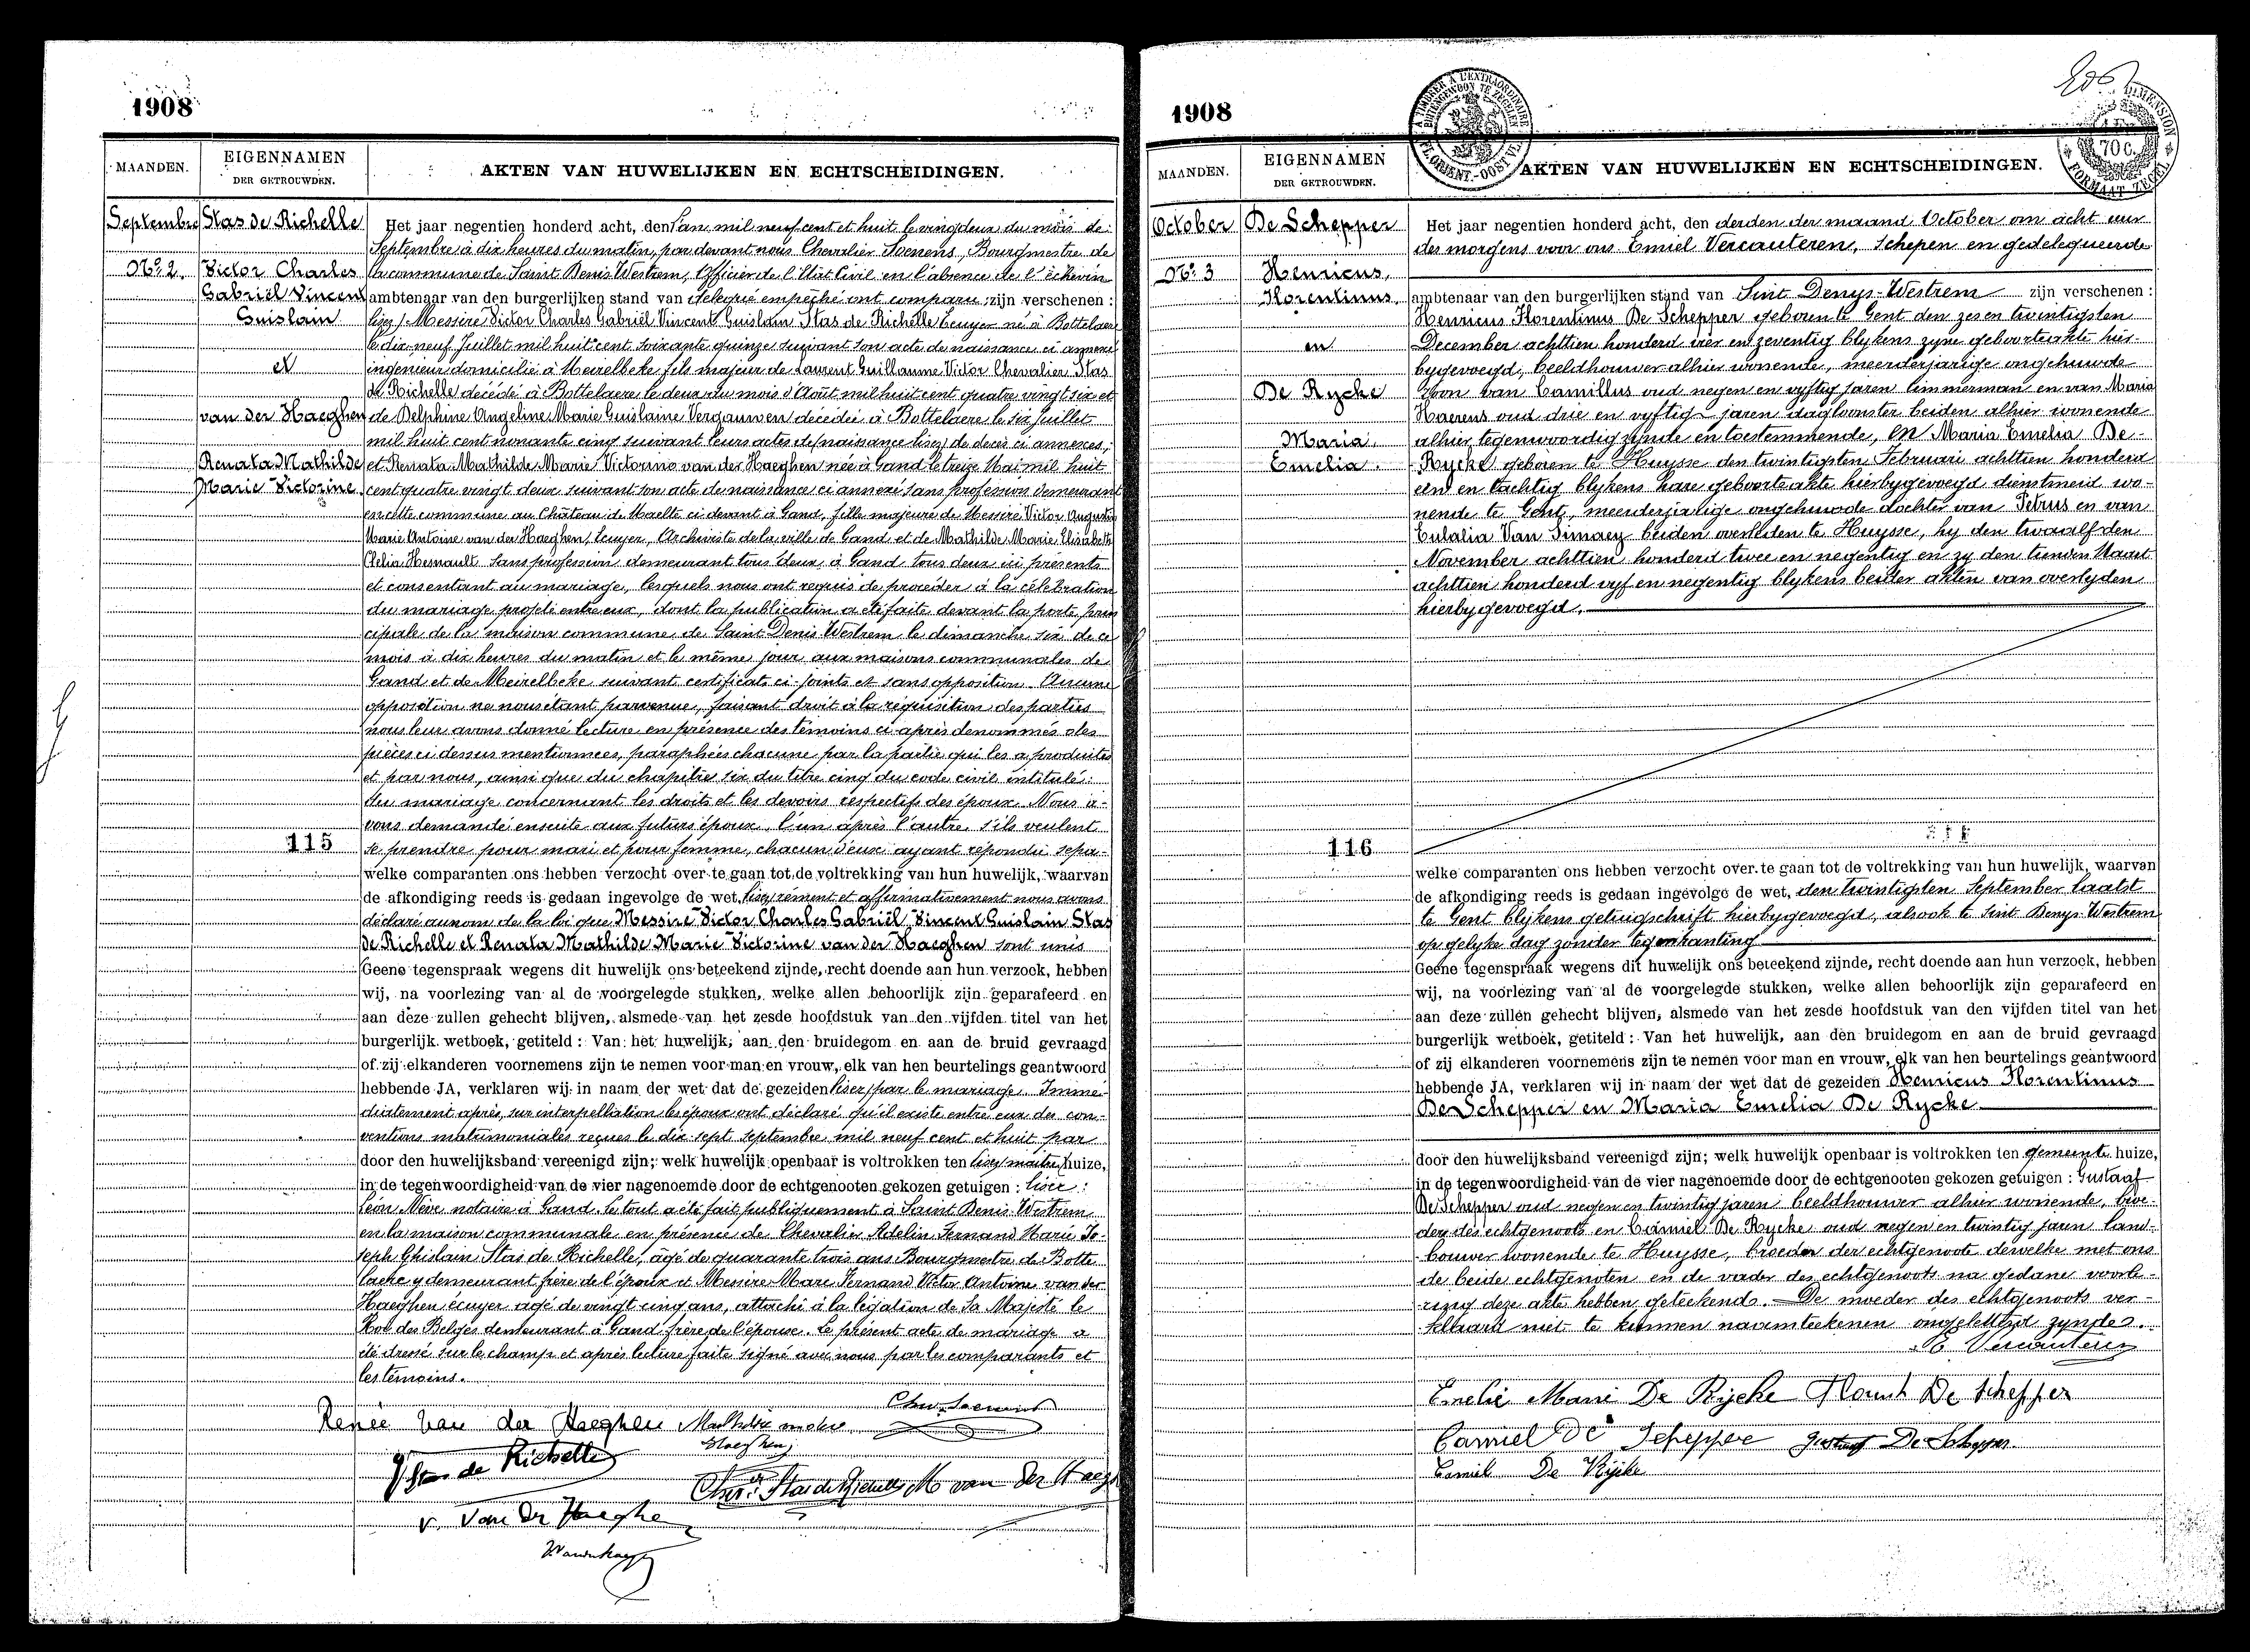 1908
MAANDEN.
EIGENNAMEN
DER GETROUWDEN.
AKTEN VAN HUWELIJKEN EN ECHTSCHEIDINGEN.
Septembre
No. 2.
Stas de Richelle
Victor Charles
Gabriël Vincent
Guislain
et
van der Haeghen
Renata Mathilde
Marie Victorine
115
Het jaar negentien honderd acht, den l'an mil neuf cent et huit le vingdeux du mois de
Septembre à dix heures du matin, par devant nous Chevalier Soenens, Bourgmestre de
la commune de Saint Denis Westrem, Officier de l'Etat Civil en l'absence de l'échevin
ambtenaar van den burgerlijken stand van délegué empêché ont comparu zijn verschenen :
lisez / Messire Victor Charles Gabriël Vincent Guislain Stas de Richelle Ecuyer né à Bottelaere
le dix-neuf Juillet mil huit cent soixante quinze suivant son acte de naissance ci annexé
ingenieur domicilié à Meirelbeke fils majeur de Laurent Guillaume Victor Chevalier Stas
de Richelle décédé à Bottelaere le deux du mois d'Août mil huit cent quatre vingt six et
de Delphine Angeline Marie Guislaine Vergauwen décédée à Bottelaere le six Juillet
mil huit cent nonante cinq suivant leurs actes de naissance lisez de décès ci annexés,
et Renata Mathilde Marie Victorine van der Haeghen née à Gand le treize Mai mil huit
cent quatre vingt deux suivant son acte de naissance ci annexé sans profession demeurant
en cette commune au Château de Maelte ci devant à Gand, fille majeure de Messire Victor Augustin
Marie Antoine van der Haeghen, Ecuyer, Archiviste de la ville de Gand et de Mathilde Marie Elisabeth
Clélia Hernault sans profession demeurant tous deux à Gand tous deux ici présents
et consentant au mariage, lesquels nous ont requis de procéder à la célébration
du mariage projeté entre eux, dont la publication a été faite devant la porte prin
cipale de la maison commune de Saint Denis Westrem le dimanche six de ce
mois à dix heures du matin et le même jour aux maisons communales de
Gand et de Meirelbeke suivant certificats ci-joints et sans opposition. Aucune
opposition ne nous étant parvenue, faisant droit à la réquisition des parties
nous leur avons donné lecture en présence des témoins ci après denommés des
pièces ci dessus mentionnées, paraphées chacune par la partie qui les a produites
et par nous, ainsi que du chapitre six du titre cinq du code civil intitulé:
du mariage concernant les droits et les devoirs respectifs des époux. Nous a-
vons demandé ensuite aux futurs époux, l'un après l'autre, s'ils veulent
se prendre pour mari et pour femme, chacun d'eux ayant répondu sépa-
welke comparanten ons hebben verzocht over te gaan tot de voltrekking van hun huwelijk, waarvan
de afkondiging reeds is gedaan ingevolge de wet, lisez rément et affirmativement nous avons
déclaré au nom de la loi que Messire Victor Charles Gabriël Vincent Guislain Stas
de Richelle et Renata Mathilde Marie Victorine van der Haeghen sont unis
Geene tegenspraak wegens dit huwelijk ons beteekend zijnde, recht doende aan hun verzoek, hebben
wij, na voorlezing van al de voorgelegde stukken, welke allen behoorlijk zijn geparafeerd en
aan deze zullen gehecht blijven, alsmede van het zesde hoofdstuk van den vijfden titel van het
burgerlijk wetboek, getiteld : Van het huwelijk, aan den bruidegom en aan de bruid gevraagd
of zij elkanderen voornemens zijn te nemen voor man en vrouw, elk van hen beurtelings geantwoord
hebbende JA, verklaren wij in naam der wet dat de gezeiden lisez / par le mariage. Immé
diatement après, sur interpellation les époux ont déclaré qu'il existe entre eux des con-
ventions matrimoniales reçues le dix sept septembre mil neuf cent et huit par
door den huwelijksband vereenigd zijn; welk huwelijk openbaar is voltrokken ten lisez / maître / huize,
in de tegenwoordigheid van de vier nagenoemde door de echtgenooten gekozen getuigen : lisez :
Léon Nève notaire à Gand. Le tout a été fait publiquement à Saint Denis Westrem
en la maison communale en présence de Chevalier Adelin Fernand Marie Jo-
seph Ghislain Stas de Richelle, âgé de quarante trois ans Bourgmestre de Botte
laere y demeurant frère de l'époux et Messire Marc Fernand Victor Antoine van der
Haeghen écuyer agé de vingt cinq ans, attaché à la légation de Sa Majesté le
Roi des Belges demeurant à Gand frère de l'épouse. Le présent acte de mariage a
été dressé sur le champ et après lecture faite signé avec nous par les comparants et
les témoins.
Chev. Soenens
Renée van der Haeghen
Haeghen
V Stas de Richelle
Chev. Stas de Richelle M van der Haegh
V. Van der Haeghe
1908
A TIMBRER A L'EXTRAORDINAIRE
BUITENGEWOON TE ZEGELEN
70 c.
FORMAAT ZEGEL
MAANDEN.
EIGENNAMEN
DER GETROUWDEN.
AKTEN VAN HUWELIJKEN EN ECHTSCHEIDINGEN.
October
No. 3
De Schepper
Henricus,
Florentinus
en
De Rycke
Maria,
Emelia.
116
Het jaar negentien honderd acht, den derden der maand October om acht uur
des morgens voor ons Emiel Vercauteren, Schepen en gedelegueerde
ambtenaar van den burgerlijken stand van Sint Denys-Westrem zijn verschenen :
Henricus Florentinus De Schepper geboren te Gent den zes en twintigsten
December achttien honderd vier en zeventig blykens zyne geboorteakte hier-
bygevoegd, beeldhouwer alhier wonende, meerderjarige ongehuwde
zoon van Camillus oud negen en vyftig jaren timmerman en van Maria
Haerens oud drie en vyftig jaren dagloonster beiden alhier wonende
alhier tegenwoordig zynde en toestemmende, en Maria Emelia De
Rycke geboren te Huysse den twintigsten Februari achttien honderd
een en tachtig blykens hare geboorteakte hierbygevoegd dienstmeid wo-
nende te Gent, meerderjarige ongehuwde dochter van Petrus en van
Eulalia Van Simaey beiden overleden te Huysse, hy den twaalfden
November achttien honderd twee en negentig en zy den tienden Maart
achttien honderd vyf en negentig blykens beider akten van overlyden
hierbygevoegd.
welke comparanten ons hebben verzocht over te gaan tot de voltrekking van hun huwelijk, waarvan
de afkondiging reeds is gedaan ingevolge de wet, den twintigsten September laatst
te Gent blykens getuigschrift hierbygevoegd, alsook te Sint Denys Westrem
op gelyke dag zonder tegenkanting
Geene tegenspraak wegens dit huwelijk ons beteekend zijnde, recht doende aan hun verzoek, hebben
wij, na voorlezing van al de voorgelegde stukken, welke allen behoorlijk zijn geparafeerd en
aan deze zullen gehecht blijven, alsmede van het zesde hoofdstuk van den vijfden titel van het
burgerlijk wetboek, getiteld : Van het huwelijk, aan den bruidegom en aan de bruid gevraagd
of zij elkanderen voornemens zijn te nemen voor man en vrouw, elk van hen beurtelings geantwoord
hebbende JA, verklaren wij in naam der wet dat de gezeiden Henricus Florentinus
De Schepper en Maria Emelia De Rycke
door den huwelijksband vereenigd zijn; welk huwelijk openbaar is voltrokken ten gemeente huize,
in de tegenwoordigheid van de vier nagenoemde door de echtgenooten gekozen getuigen : Gustaaf
De Schepper oud negen en twintig jaren beeldhouwer alhier wonende, broe-
der des echtgenoots en Camiel De Rycke oud negen en twintig jaren land-
bouwer wonende te Huysse, broeder der echtgenoote dewelke met ons
de beide echtgenoten en de vader des echtgenoots na gedane voorle-
zing deze akte hebben geteekend. De moeder des echtgenoots ver-
klaard niet te kunnen naamteekenen ongeletterd zynde.
E Vercauteren
Emelie Marie De Rijcke Florent De Schepper
Camiel De Schepper Gustaaf De Schepper
Camiel De Rijcke